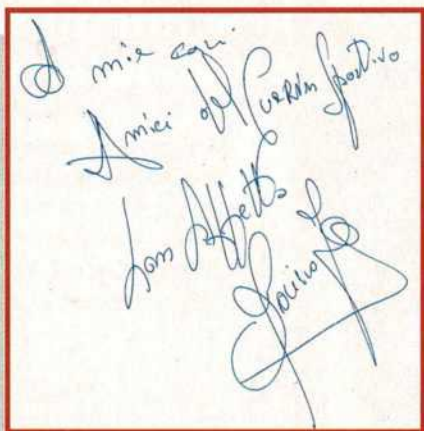 A miei cari
Amici del Guerin Sportivo
Con Affetto